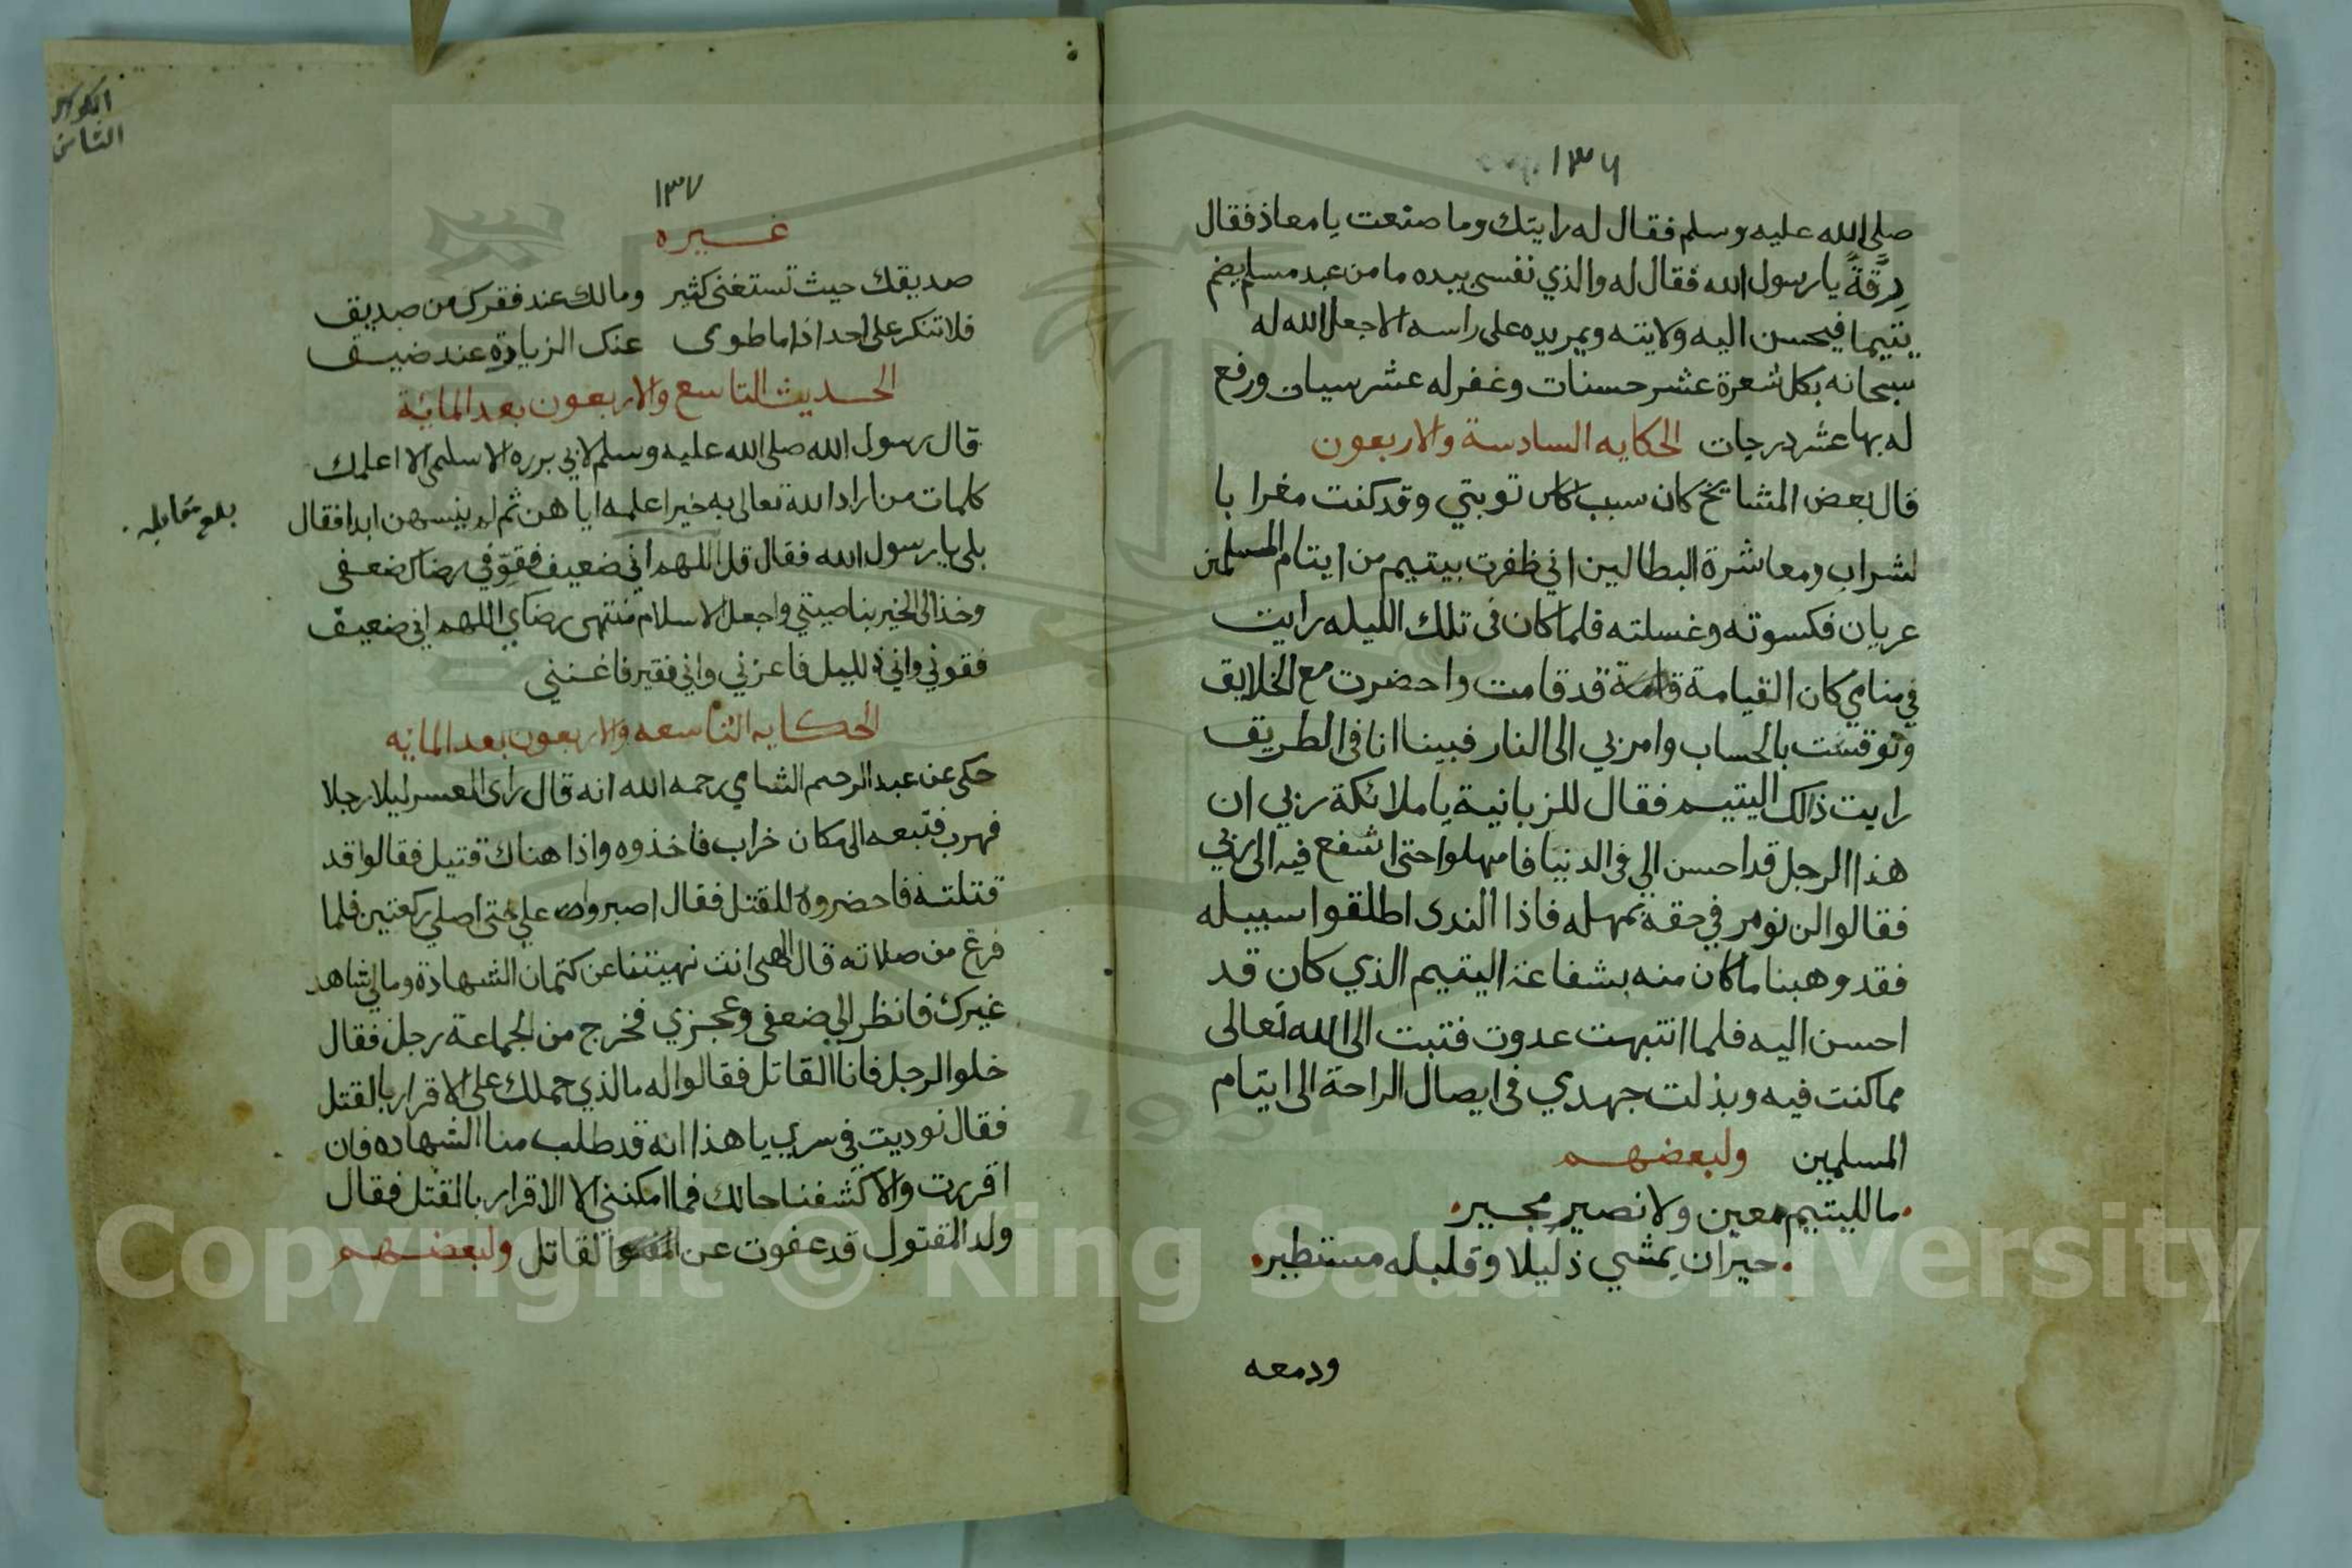 ١٣٦
صلى الله عليه وسلم فقال له رايتك وما صنعت يا معاذ فقال
رقةً يا رسول الله فقال له والذي نفسي بيده ما من عبد مسلم يضم
يتيما فيحسن اليه ولايته ويمر يده على راسه الا جعل الله له
سبحانه بكل شعرة عشر حسنات وغفر له عشر سيات ورفع
له بها عشر درجات الحكايه السادسة والاربعون
قال بعض المشايخ كان سبب توبتي وقد كنت مغرا با
لشراب ومعاشرة البطالين اني ظفرت بيتيم من ايتام المسلمين
عريان فكسوته وغسلته فلما كان في تلك الليله رايت
في منامي كان القيامة قد قامت واحضرت مع الخلايق
ونوقست بالحساب وامر بي الى النار فبينا انا في الطريق
رايت ذالك اليتيم فقال للزبانية يا ملائكة ربي ان
هذا الرجل قد احسن الي في الدنيا فامهلوا حتى اشفع فيه الى ربي
فقالوا لن نومر في حقه بمهله فاذا الندى اطلقوا سبيله
فقد وهبنا ما كان منه بشفاعة اليتيم الذي كان قد
احسن اليه فلما انتبهت عدوت فتبت الى الله تعالى
مما كنت فيه وبذلت جهدي في ايصال الراحة الى ايتام
المسلمين ولبعضهم
ما لليتيم معين ولا نصير مجير
حيران يمشي ذليلا وقلبله مستطير
ودمعه
الثامن
١٣٧
غيره
صديقك حيث تستغنى كثير ومالك عند فقرك من صديق
فلا تنكر على احد اذا ما طوى عنك الزيادة عند ضيق
الحديث التاسع والاربعون بعد المائة
قال رسول الله صلى الله عليه وسلم لابي برره الاسلمي الا اعلمك
كلمات من اراد الله تعالى به خيرا علمه اياهن ثم لم ينسهن ابدا فقال
بلغ مقابله
بلى يا رسول الله فقال قل اللهم اني ضعيف فقوّ في رضاك ضعفي
وخذ الى الخير بناصيتي واجعل الاسلام منتهى رضاي اللهم اني ضعيف
فقوني واني ذليل فاعزني واني فقير فاغنني
الحكايه التاسعه والاربعون بعد المائه
حكى عن عبد الرحيم الشامي رحمه الله انه قال راى العسر ليلا رجلا
فهرب فتبعه الى مكان خراب فاخذوه واذا هناك قتيل فقالوا قد
قتلته فاحضروه للقتل فقال اصبروا علي حتى اصلي ركعتين فلما
فرغ من صلاته قال الهى انت نهيتنا عن كتمان الشهادة ومالي شاهد
غيرك فانظر الي ضعفي وعجزي فخرج من الجماعة رجل فقال
خلوا الرجل فانا القاتل فقالوا له ما الذي حملك على الاقرار بالقتل
فقال نوديت في سري يا هذا انه قد طلب منا الشهاده فان
اقررت والا كشفنا حالك فما امكنني الا الاقرار بالقتل فقال
ولد المقتول قد عفوت عن القاتل ولبعضهم
Copyright © King Saud University